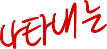 나타내는